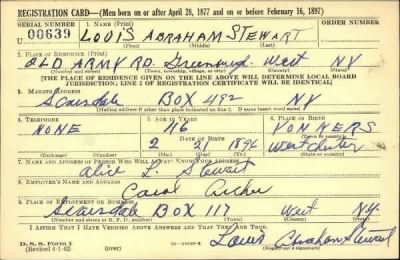 REGISTRATION CARD—(Men born on or after April 28, 1877 and on or before February 16, 1897)
SERIAL NUMBER 1. NAME (Print)
U 00639 LOUIS ABRAHAM STEWART
(First) (Middle) (Last)
2. PLACE OF RESIDENCE (Print)
OLD ARMY RD. West NY
(Number and street) (Town, township, village, or city) (County) (State)
[THE PLACE OF RESIDENCE GIVEN ON THE LINE ABOVE WILL DETERMINE LOCAL BOARD
JURISDICTION; LINE 2 OF REGISTRATION CERTIFICATE WILL BE IDENTICAL]
3. MAILING ADDRESS
Scarsdale BOX 492 NY
[Mailing address if other than place indicated on line 2. If same insert word same]
4. TELEPHONE 5. AGE IN YEARS 6. PLACE OF BIRTH
NONE 46 YONKERS
DATE OF BIRTH (Town or county)
2 21 Westchester
(Exchange) (Number) (Mo.) (Day) (Yr.) (State or country)
7. NAME AND ADDRESS OF PERSON WHO WILL ALWAYS KNOW YOUR ADDRESS
Alice L. Stewart
8. EMPLOYER'S NAME AND ADDRESS
Carol Archer
9. PLACE OF EMPLOYMENT OR BUSINESS
Scarsdale BOX 117 West NY.
(Number and street or R. F. D. number) (Town) (County) (State)
I AFFIRM THAT I HAVE VERIFIED ABOVE ANSWERS AND THAT THEY ARE TRUE.
D. S. S. Form 1
(Revised 4-1-42) (over)
Louis Abraham Stewart